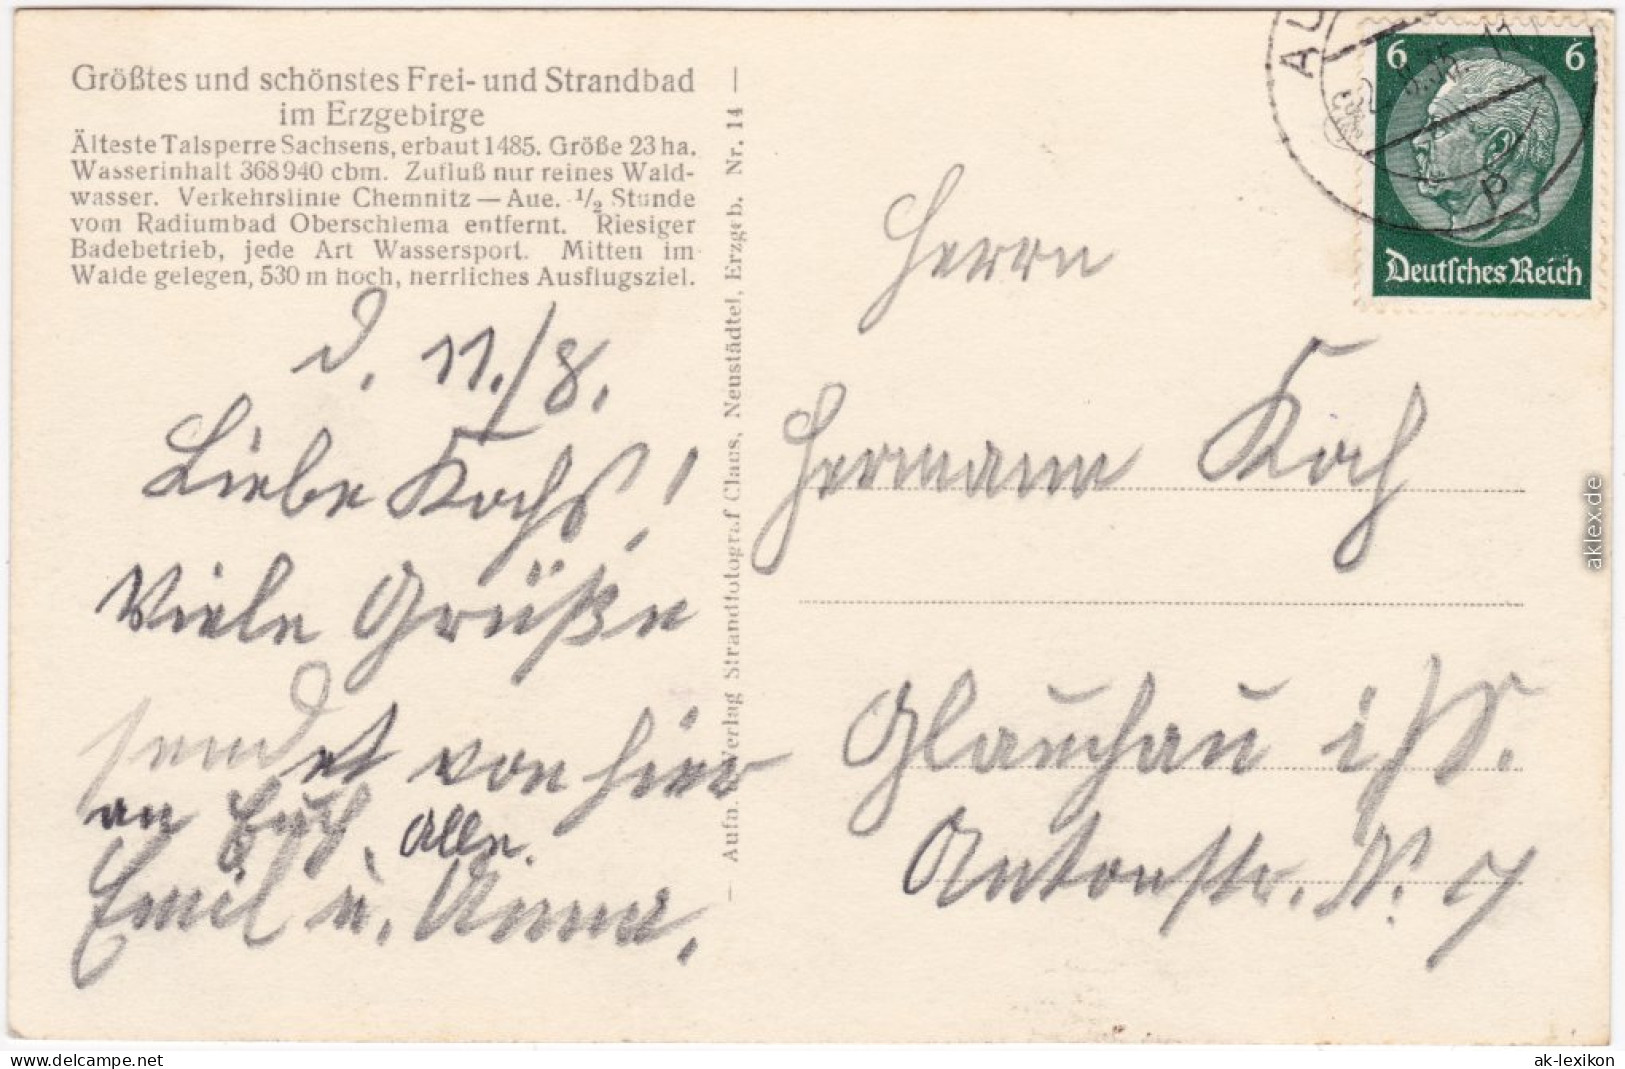 Größtes und schönstes Frei- und Strandbad
im Erzgebirge
Älteste Talsperre Sachsens, erbaut 1485. Größe 23 ha.
Wasserinhalt 368940 cbm. Zufluß nur reines Wald-
wasser. Verkehrslinie Chemnitz — Aue. 1/2 Stunde
vom Radiumbad Oberschlema entfernt. Riesiger
Badebetrieb, jede Art Wassersport. Mitten im
Walde gelegen, 530 m hoch, herrliches Ausflugsziel.
d. 11./8.
Liebe Kochs!
Viele Grüße
sendet von hier
an Euch Alle.
Emil u. Anna.
— Aufn. u. Verlag Strandfotograf Claus, Neustädtel, Erzgeb. Nr. 14 —
6 6
Deutsches Reich
Herrn
Hermann Koch
Glauchau i/S.
Antonstr. N. 7
aklex.de
https://www.delcampe.net
ak-lexikon